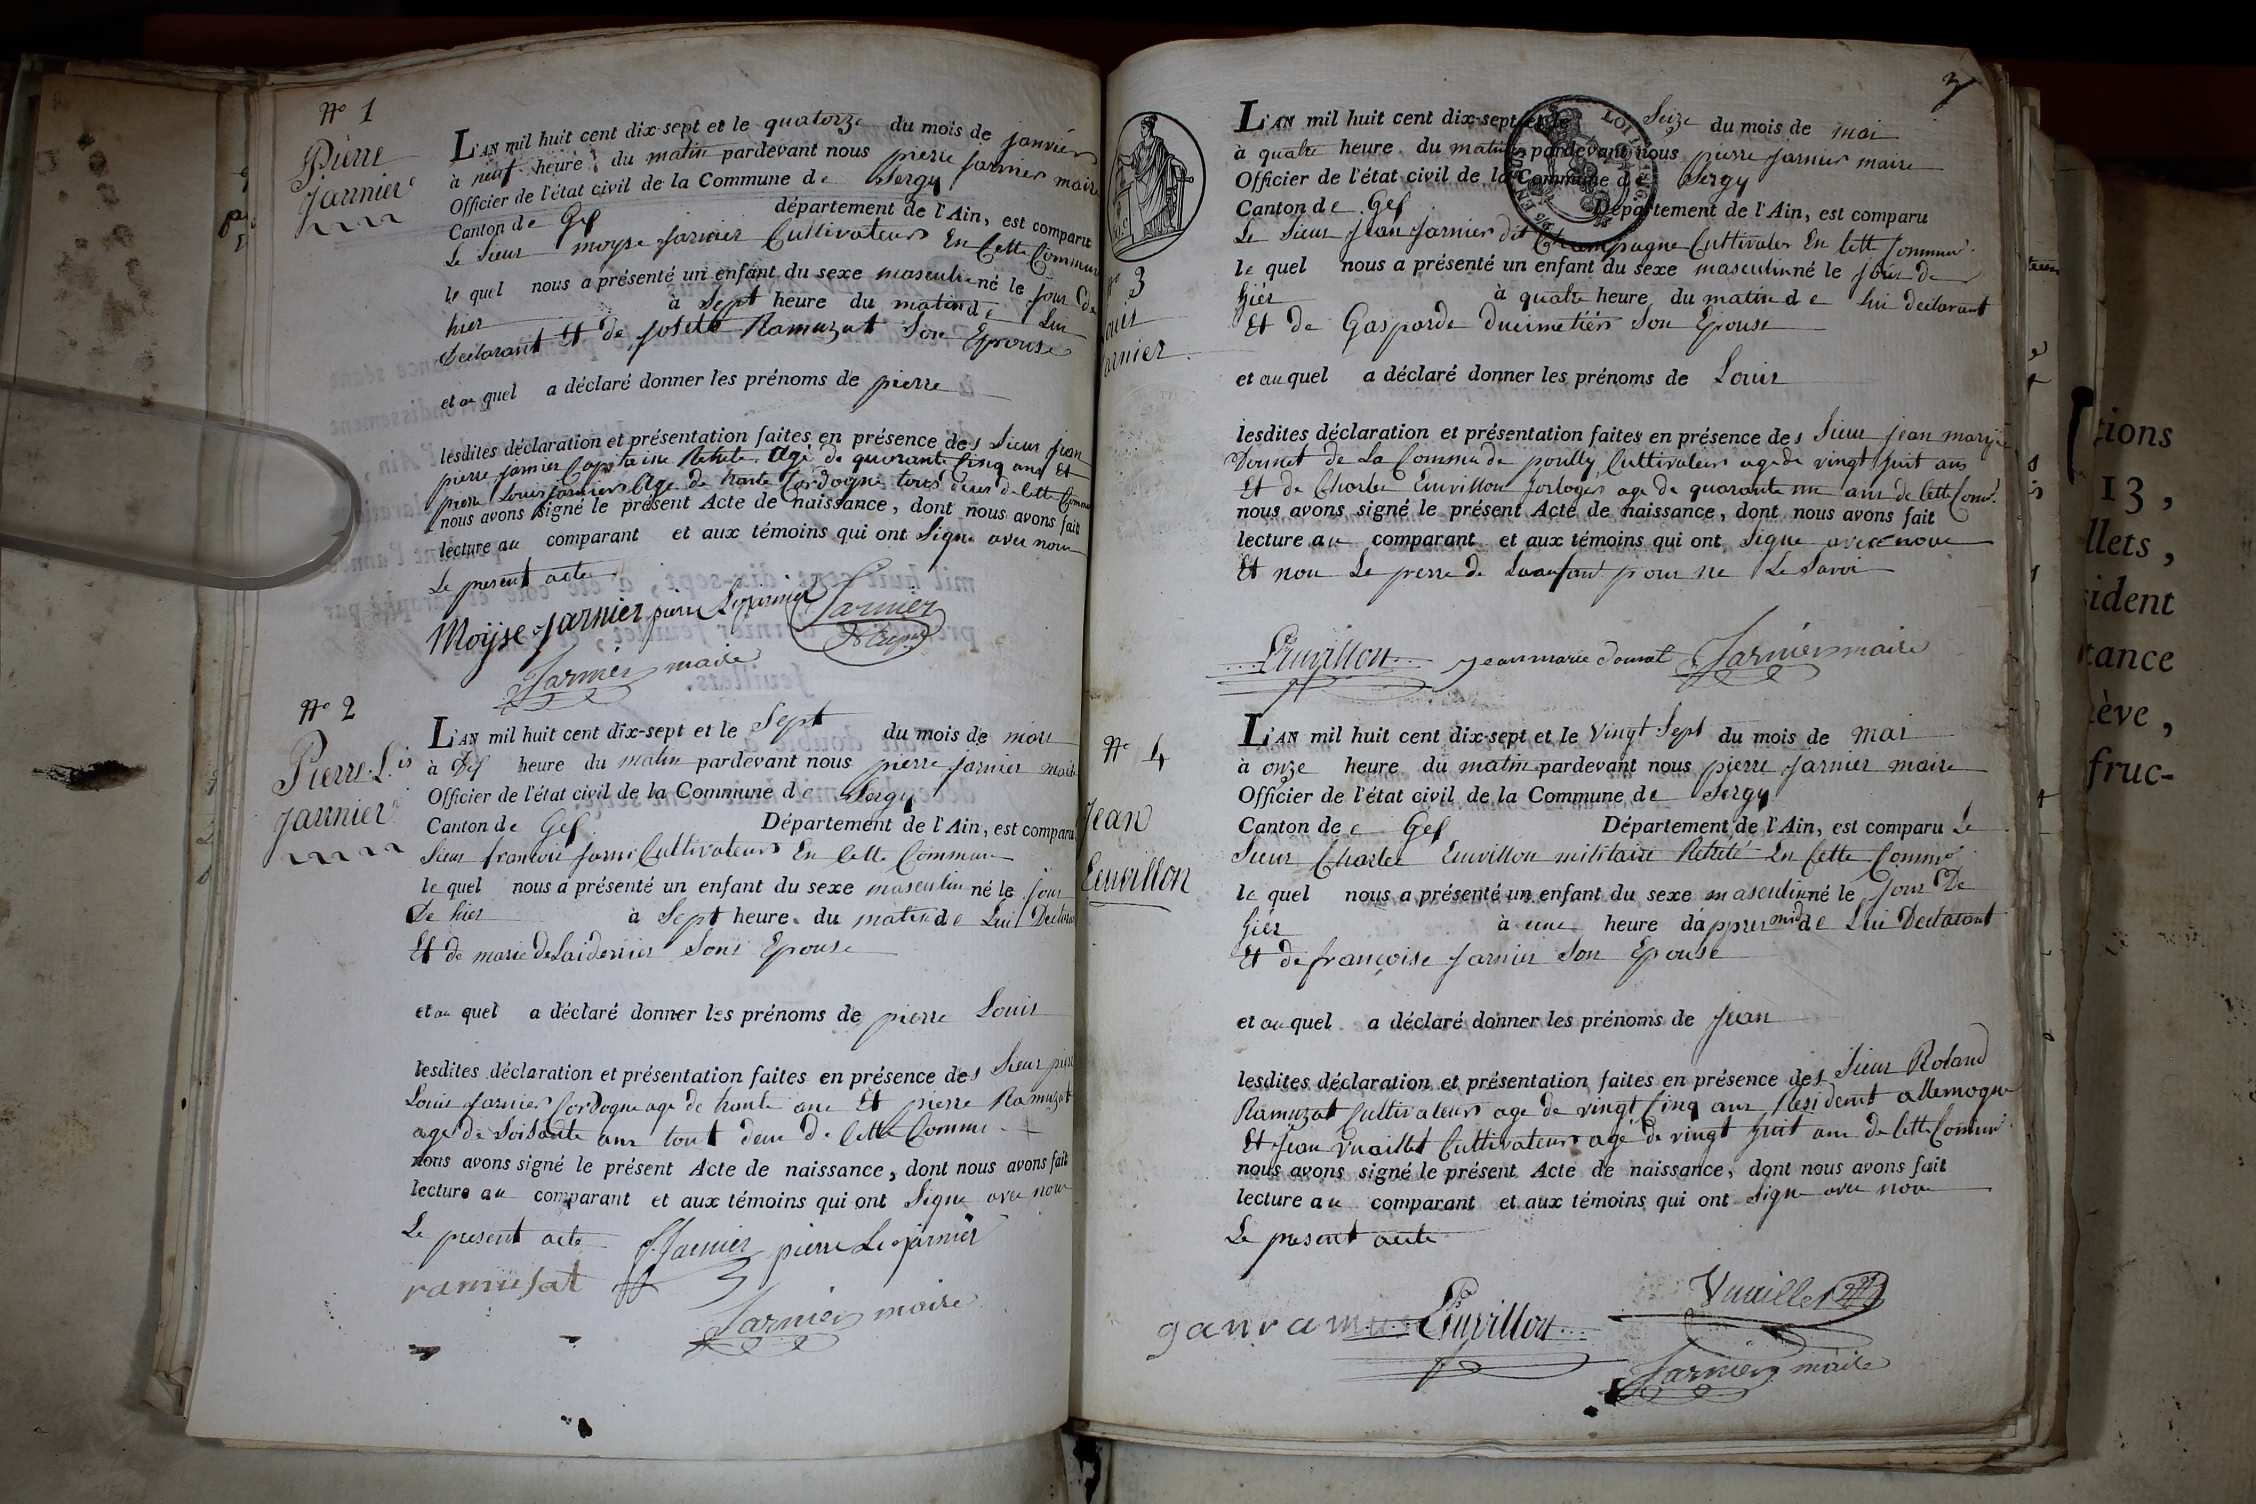 No 1
Pierre
Jarnier
L'AN mil huit cent dix-sept et le quatorze du mois de janvier
à neuf heure du matin pardevant nous pierre Jarnier maire
Officier de l'état civil de la Commune de Sergy
Canton de Gex département de l'Ain, est comparu
Le Sieur moyse Jarnier Cultivateur En Cette Commune
le quel nous a présenté un enfant du sexe masculin né le jour de
hier à Sept heure du matin de Lui
Declarant Et de josette Ramuzat Son Epouse
et au quel a déclaré donner les prénoms de pierre
lesdites déclaration et présentation faites en présence des Sieur jean
pierre Jarnier Capitaine Retreté Agé de quarante Cinq ans Et
pierre Louis Jarnier Age de trante Cordogné tous deux de Cette Commune
nous avons signé le présent Acte de naissance, dont nous avons fait
lecture au comparant et aux témoins qui ont Signe avec nous
Le present acte
Moÿse Jarnier pierre Ls jarnier Jarnier
Jarnier maire
No 2
Pierre L.is
Jarnier
L'AN mil huit cent dix-sept et le Sept du mois de mars
à Dix heure du matin pardevant nous pierre Jarnier maire
Officier de l'état civil de la Commune de Sergy
Canton de Gex Département de l'Ain, est comparu
Sieur francois Jarni Cultivateur En Cette Commune
le quel nous a présenté un enfant du sexe masculin né le jour
De hier à Sept heure du matin de Lui Declarant
Et de marie Son Epouse
et au quel a déclaré donner les prénoms de pierre Louis
lesdites déclaration et présentation faites en présence des Sieur pierre
Louis Jarnier Cordogne age de trante ans Et pierre Ramuzat
age de Soisante ans tout deux de Cette Commune
nous avons signé le présent Acte de naissance, dont nous avons fait
lecture au comparant et aux témoins qui ont Signe avec nous
Le present acte Jarnier pierre Ls jarnier
ramusat
Jarnier maire
3
No 3
Louis
Jarnier
L'AN mil huit cent dix-sept et le Seize du mois de mai
à quatre heure du matin pardevant nous pierre Jarnier maire
Officier de l'état civil de la Commune de Sergy
Canton de Gex Département de l'Ain, est comparu
Le Sieur Jean Jarnier dit Champagne Cultivateur En Cette Commune
le quel nous a présenté un enfant du sexe masculin né le jour de
hiér à quatre heure du matin de lui declarant
Et de Gasparde ducimetiér Son Epouse
et au quel a déclaré donner les prénoms de Louis
lesdites déclaration et présentation faites en présence des Sieur jean marie
Dournet de La Commu de poully Cultivateur age de vingt huit ans
Et de Charle Euvillon horloger age de quarante un ans de Cette Comu
nous avons signé le présent Acte de naissance, dont nous avons fait
lecture au comparant et aux témoins qui ont Signe avec nous
Et non Le perre de pour ne Le Savoir
Euvillon jean marie Jarnier maire
No 4
Jean
Euvillon
L'AN mil huit cent dix-sept et le Vingt Sept du mois de mai
à onze heure du matin pardevant nous pierre Jarnier maire
Officier de l'état civil de la Commune de Sergy
Canton de Gex Département de l'Ain, est comparu Le
Sieur Charle Euvillon militaire Retreté En Cette Commu
le quel nous a présenté un enfant du sexe masculin né le jour De
hiér à une heure d'appres midi de Lui Declarant
Et de françoise Jarnier Son Epouse
et au quel a déclaré donner les prénoms de Jean
lesdites déclaration et présentation faites en présence des Sieur Roland
Ramuzat Cultivateur age de vingt Cinq ans Resident allemogne
Et Jean Vuaillet Cultivateur agé de vingt huit ans de Cette Comun
nous avons signé le présent Acte de naissance, dont nous avons fait
lecture au comparant et aux témoins qui ont Signe avec nous
Le present acte
Vuaillet
Euvillon
Jarnier maire
tions
13,
llets,
sident
tance
ève,
fruc-